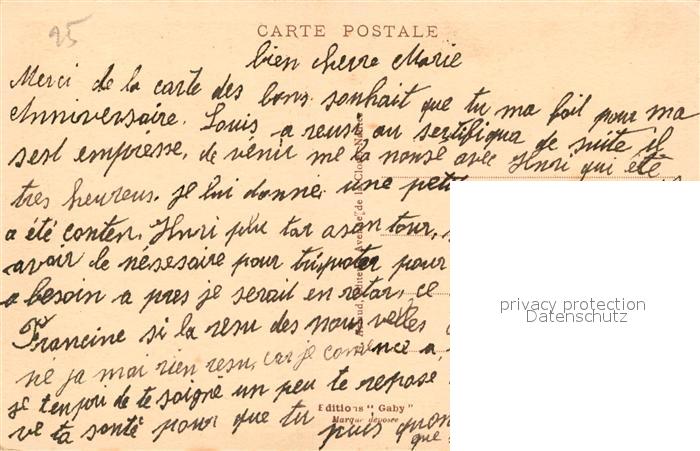 25
CARTE POSTALE
bien cherre Marie
Merci de la carte des bons souhait que tu ma fait pour ma
Anniversaire. Louis a reusi au sertifiqua de suite il
sest empresse, de venir me la nonsé avec Henri qui été
tres heureus. je lui donner une peti
a été conten. Henri plu tar a son tour,
avoir le nésesaire pour tripoter pour
a besoin a pres je serait en retar, ce
Francine si la resu des nouvelles
ne ja mai rien resu, car je comence a,
je ten pri de te soigné un peu te reposé
ve ta santé pour que tu puis quon
que
Editions "Gaby"
Marque déposée
privacy protection
Datenschutz